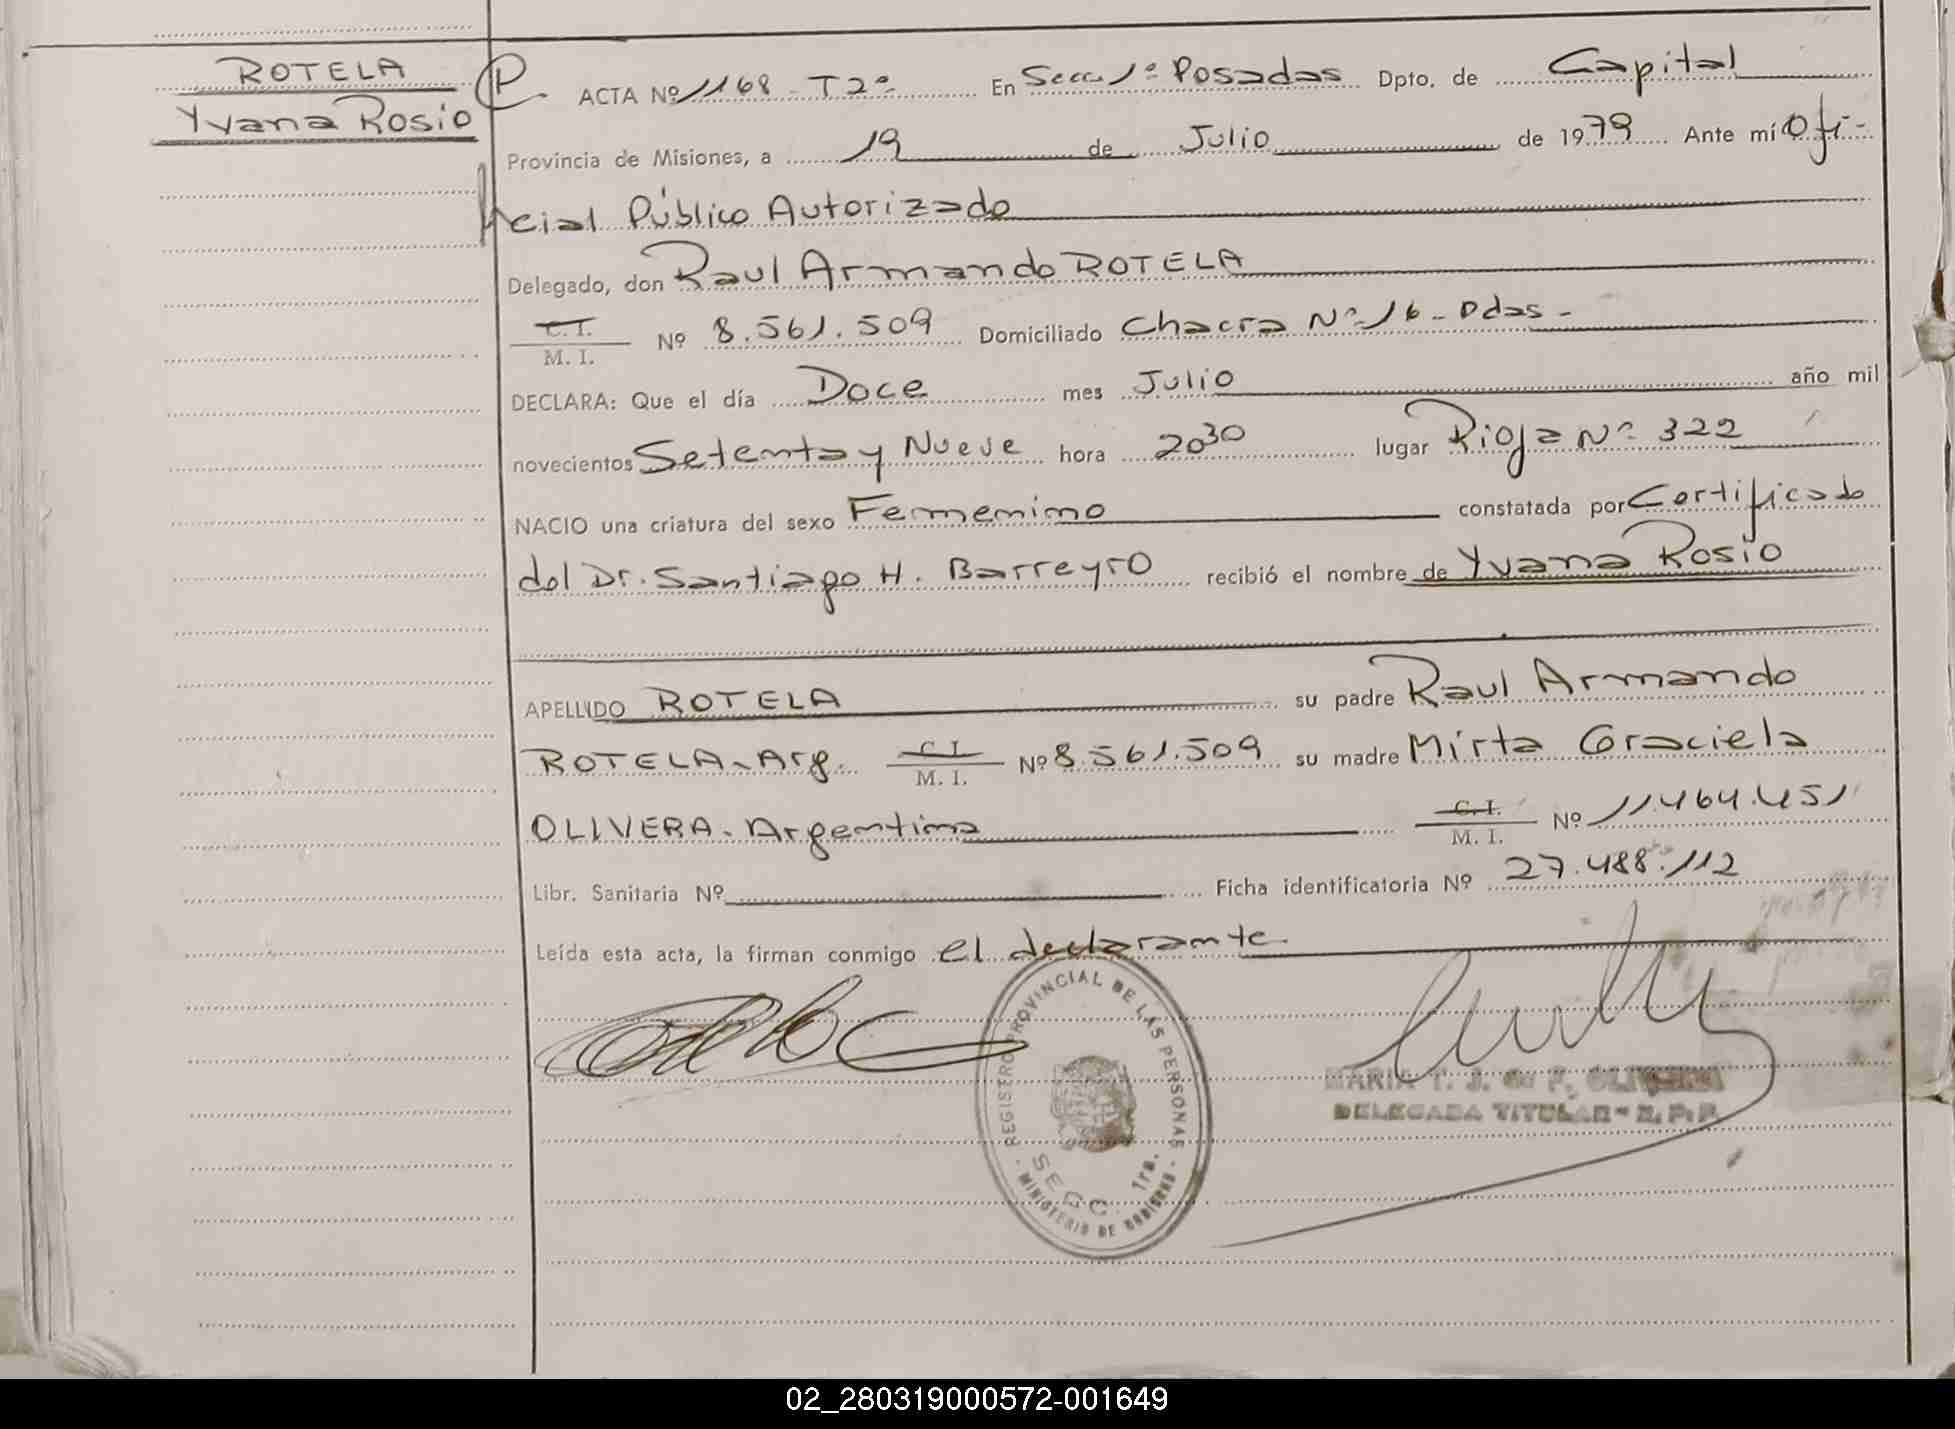 ROTELA
Yvana Rosio
ACTA Nº 1168 - T2º En Secc. 1ª Posadas Dpto. de Capital
Provincia de Misiones, a 19 de Julio de 1979 Ante mí Ofi-
cial Público Autorizado
Delegado, don Raul Armando ROTELA
C. I.
M. I. Nº 8.561.509 Domiciliado Chacra Nº 16 - Pdas -
DECLARA: Que el día Doce mes Julio año mil
novecientos Setenta y Nueve hora 20 30 lugar Rioja Nº 322
NACIO una criatura del sexo Femenino constatada por Certificado
del Dr. Santiago H. Barreyro recibió el nombre de Yvana Rosio
APELLIDO ROTELA su padre Raul Armando
ROTELA - Arg. C. I. M. I. Nº 8.561.509 su madre Mirta Graciela
OLIVERA - Argentina C. I. M. I. Nº 11.464.451
Libr. Sanitaria Nº Ficha identificatoria Nº 27.488.112
Leída esta acta, la firman conmigo el declarante
REGISTRO PROVINCIAL DE LAS PERSONAS
SECC. 1ra.
- MINISTERIO DE GOBIERNO -
MARIA T. J. de F. OLIVERA
DELEGADA TITULAR - R. P. P.
02_280319000572-001649